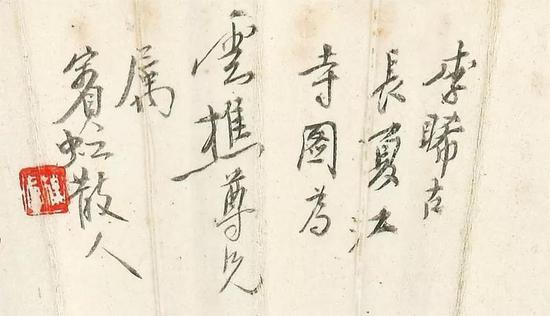 李晞古
長夏江
寺圖為
雲樵尊兄
属
賓虹散人